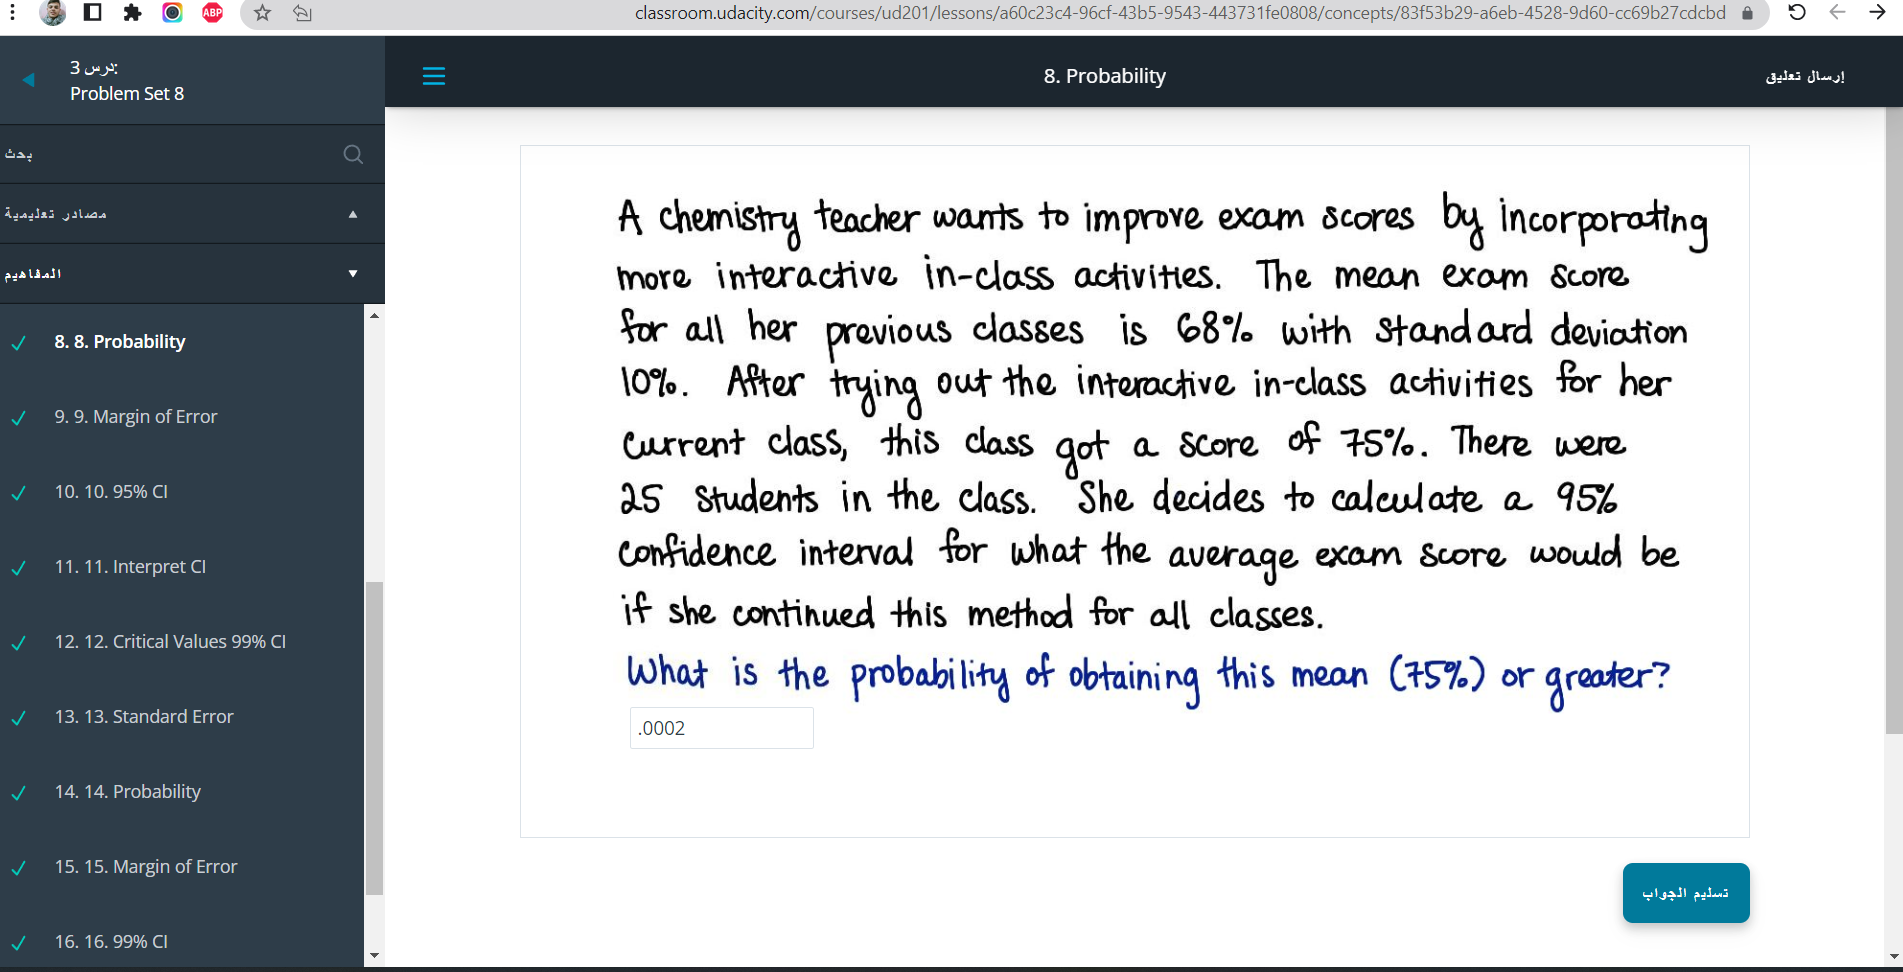 ABP
classroom.udacity.com/courses/ud201/lessons/a60c23c4-96cf-43b5-9543-443731fe0808/concepts/83f53b29-a6eb-4528-9d60-cc69b27cdcbd
درس 3:
Problem Set 8
8. Probability
إرسال تعليق
بحث
مصادر تعليمية
المفاهيم
8. 8. Probability
9. 9. Margin of Error
10. 10. 95% CI
11. 11. Interpret CI
12. 12. Critical Values 99% CI
13. 13. Standard Error
14. 14. Probability
15. 15. Margin of Error
16. 16. 99% CI
A chemistry teacher wants to improve exam scores by incorporating
more interactive in-class activities. The mean exam score
for all her previous classes is 68% with standard deviation
10%. After trying out the interactive in-class activities for her
current class, this class got a score of 75%. There were
25 students in the class. She decides to calculate a 95%
confidence interval for what the average exam score would be
if she continued this method for all classes.
What is the probability of obtaining this mean (75%) or greater?
.0002
تسليم الجواب